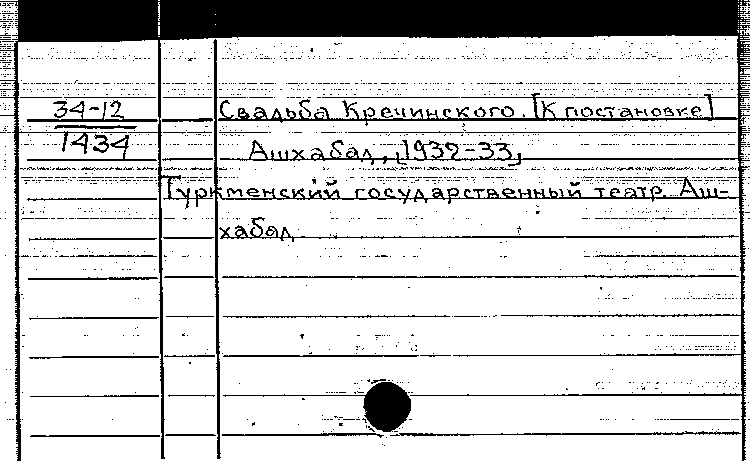 34-12
1434
Свадьба Кречинского. [К постановке]
Ашхабад, [1932-33]
Туркменский государственный театр. Аш-
хабад